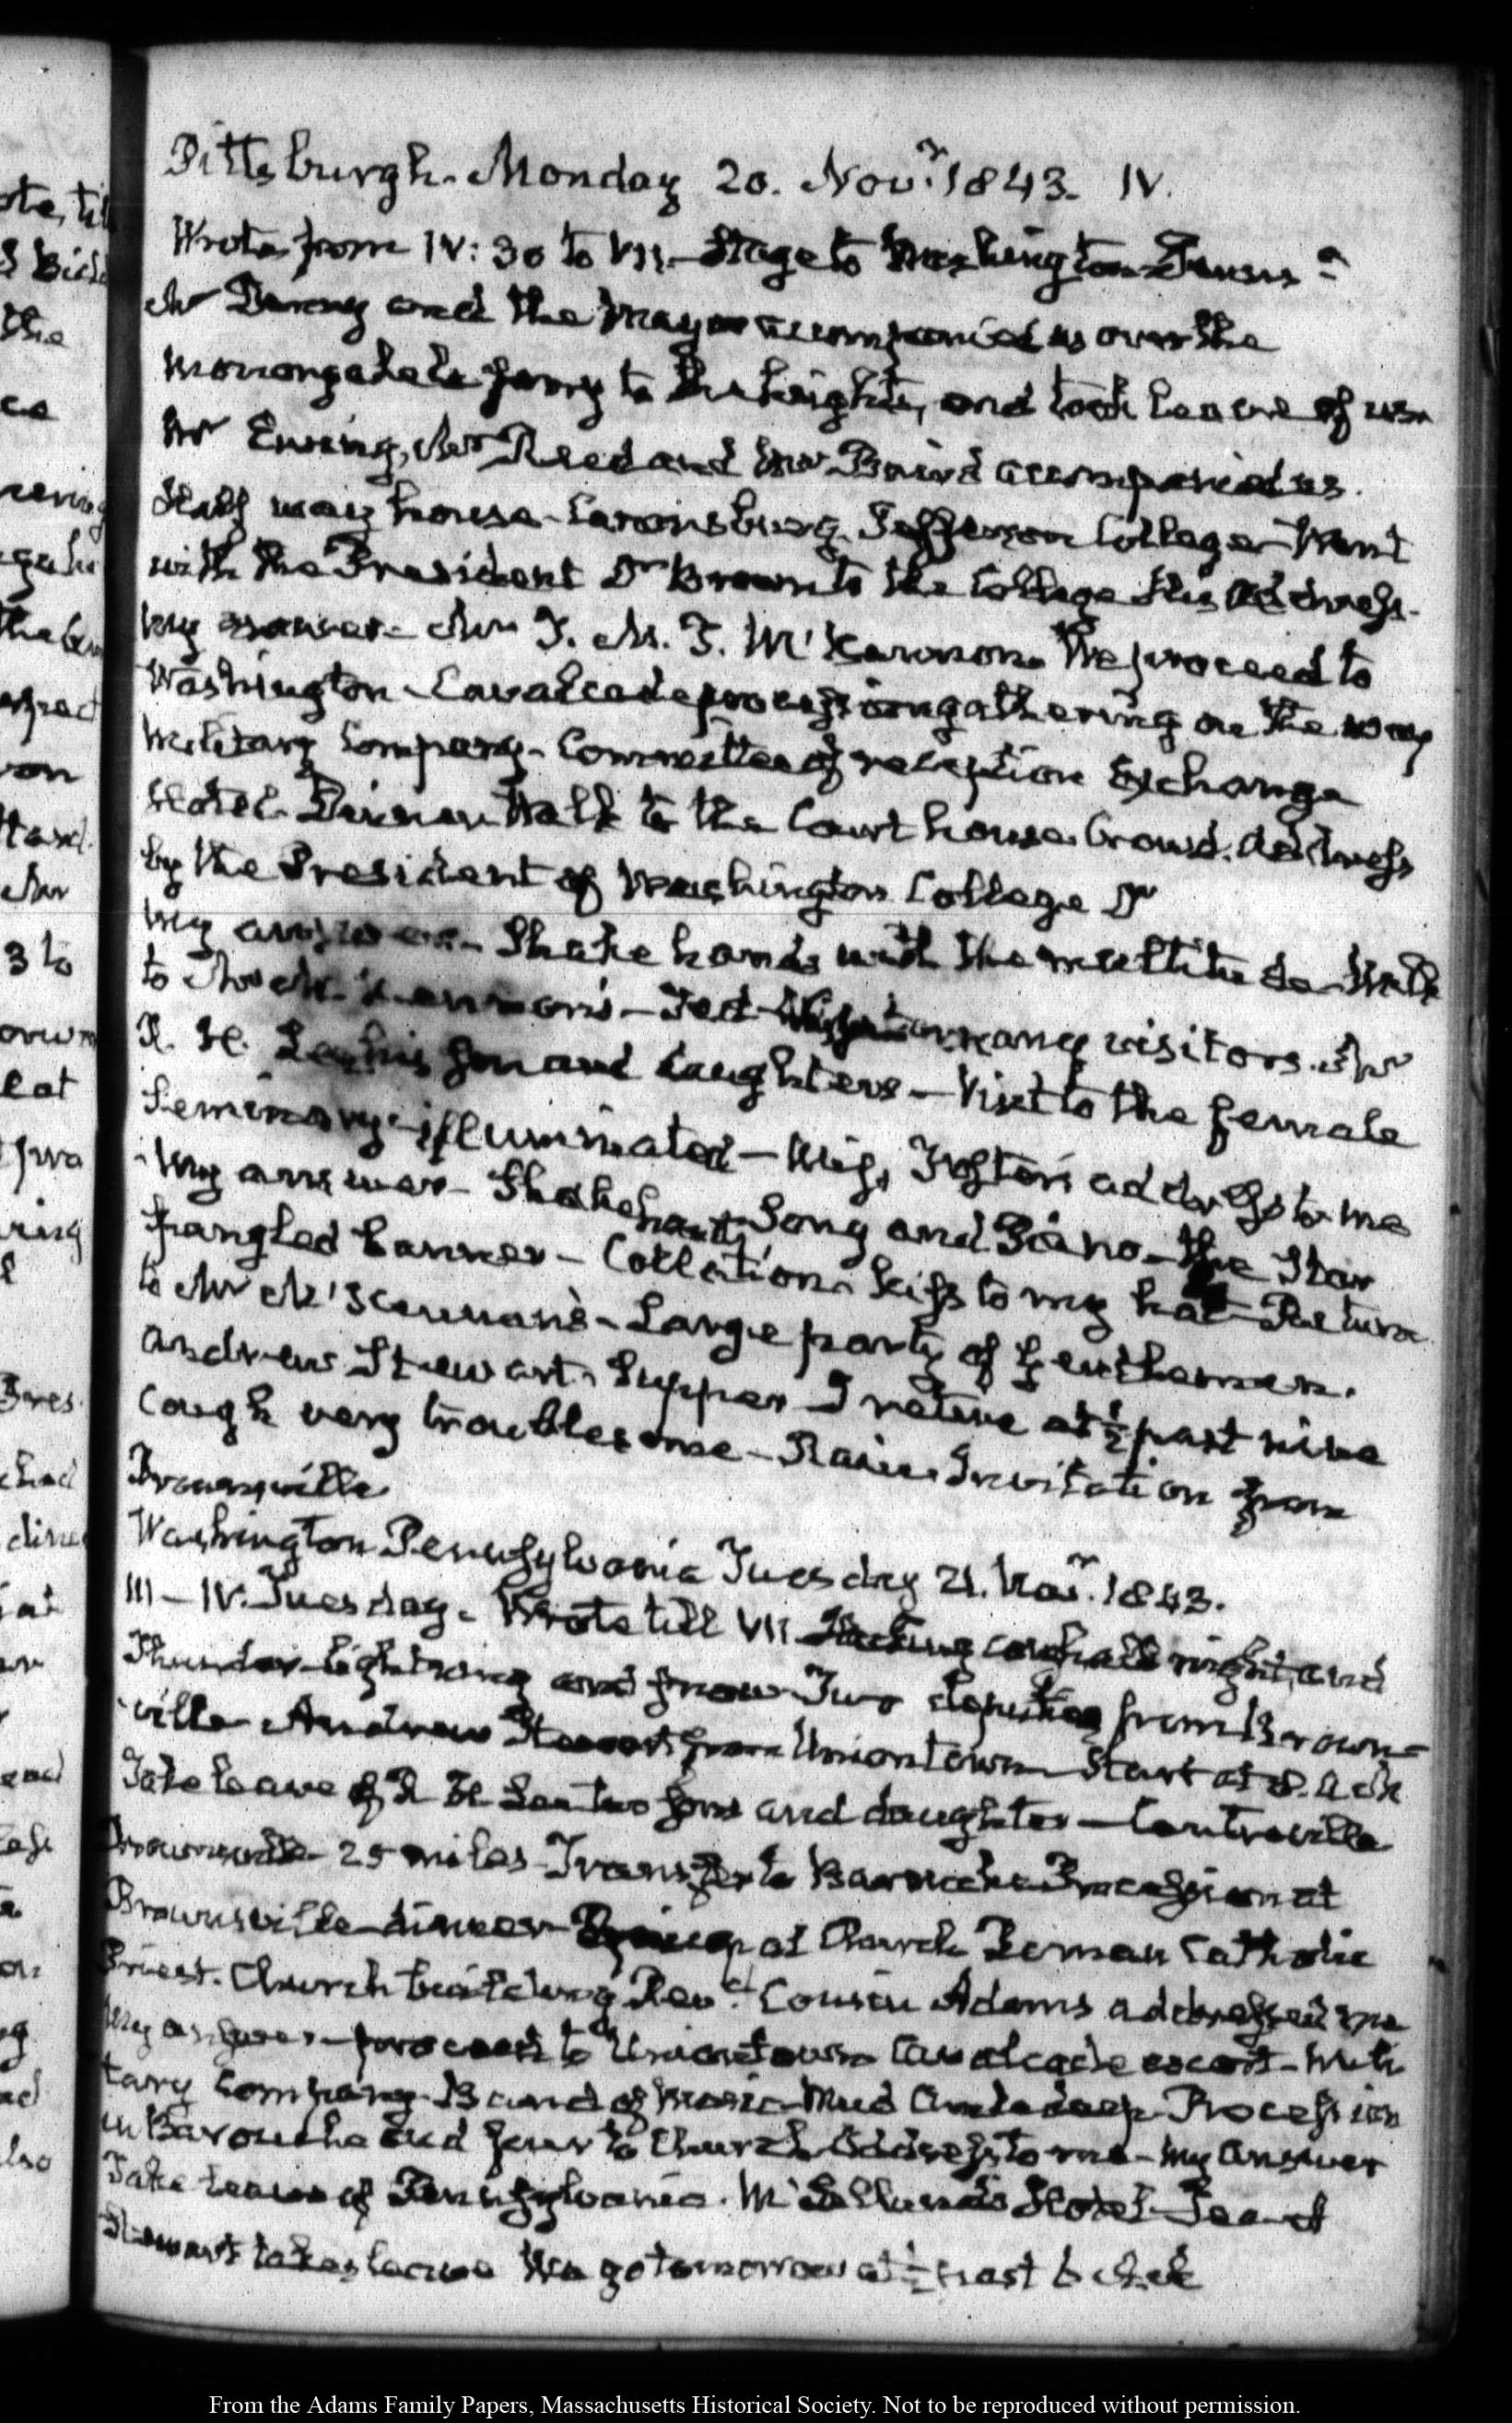 Pittsburgh. Monday 20. Novr. 1843. IV.
Wrote from IV:30 to VII. Stage to Washington
Mr Denny and the Mayor accompanied us over the
Monongahela ferry to the heights, and took leave of us.
Mr Ewing, Mr Reed and Mr Baird accompanied us.
Half way house. Canonsburg. Jefferson College. Went
with the President Dr Brown to the College his address.
My answer. Mr T. M. T. M'Kennon. We proceed to
Washington. Cavalcade procession gathering on the way
Military Company. Committee of reception Exchange
Hotel. Dinner. Walk to the Court house. Crowd. Address
by the President of Washington College Dr
My answer. Shake hands with the multitude. Walk
to Mr M'Kennon's. Tea. many visitors. Mr
R. H. Lee, his son and daughters — Visit to the female
Seminary illuminated — Miss Foster's address to me
My answer. Shake hands. Song and Piano. the Star
spangled banner — Collation. Kiss to my hat. Return
to Mr M'Kennan's. Large party of Gentlemen.
Andrew Stewart. Supper. I retire at ½ past nine
Cough very troublesome. Rain. Invitation from
Brownsville
Washington Pennsylvania Tuesday 21. Novr. 1843.
III — IV. Tuesday. Wrote till VII. Hacking cough all night, and
Thunder lightning and snow. Two deputies from Browns-
ville. Andrew Stewart from Uniontown. Start at 8. a ck
Take leave of R H Lee two sons and daughter — Centreville
Brownsville 25 miles. Transfer to Barouche. Procession at
Brownsville dinner. at Church Roman Catholic
Priest. Church building Revd. Cousin Adams addressed me
My answer. proceed to Uniontown Cavalcade escort. Mili
tary Company. Band of Music. Mud Ancle deep. Procession
in Barouche and four to Church. Address to me. My answer
Take leave of Pennsylvania. M'Clelland's Hotel. Tea.
Stewart takes leave We go tomorrow at ½ past 6
ote, til
the
on
Mr
3 to
eat
ring
Pres.
From the Adams Family Papers, Massachusetts Historical Society. Not to be reproduced without permission.